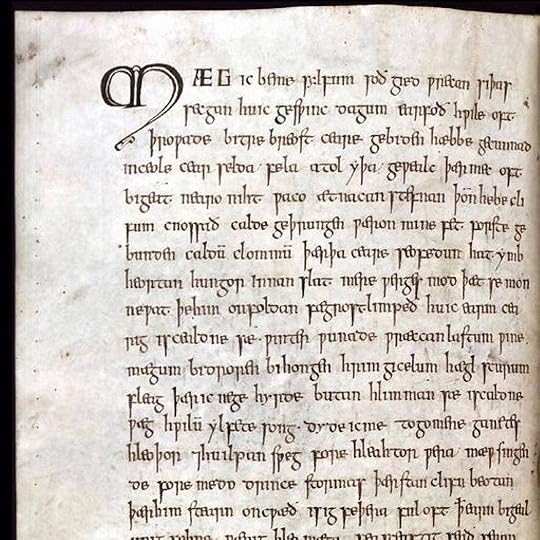 MÆG ic be me sylfum soð gied wrecan siþas
secgan hu ic geswinc dagum earfoð hwile oft
þrowade bitre breost ceare gebiden hæbbe gecunnad
in ceole cear selda fela atol yþa gewealc þær mec oft
bigeat nearo niht waco æt nacan stefnan þoñ he be cli
fum cnossað calde geþrungen wæron mine fet forste ge
bunden caldū clommū þær þa ceare seofedun hat ymb
heortan hungor innan slat mere werges mod þæt se mon
ne wat þe him on foldan fægrost limpeð hu ic earm cea
rig iscealdne sæ winter wunade wræccan lastum wine
mægum bidroren bihongen hrim gicelum hægl scurum
fleag þær ic ne gehyrde butan hlimman sæ iscaldne
wæg hwilū ylfete song dyde ic me to gomene ganetes
hleoþor ⁊ huilpan sweg fore hleahtor wera mæw singen
de fore medo drince stormas þær stan clifu beotan
þær him stearn oncwæð isig feþera ful oft þæt earn bigeal